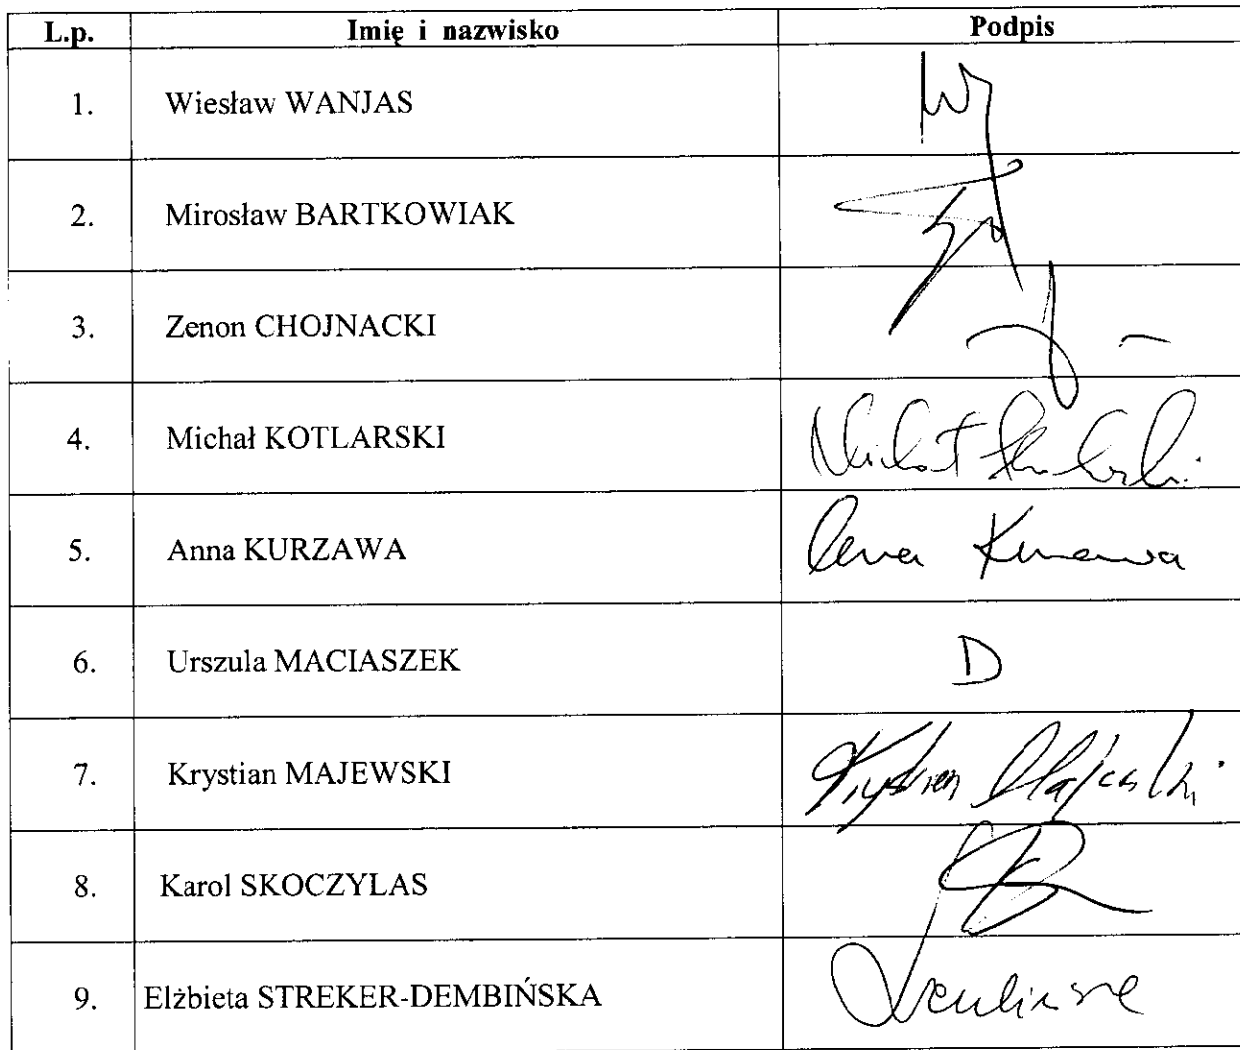 L.p. Imię i nazwisko Podpis
1. Wiesław WANJAS
2. Mirosław BARTKOWIAK
3. Zenon CHOJNACKI
4. Michał KOTLARSKI
5. Anna KURZAWA
6. Urszula MACIASZEK D
7. Krystian MAJEWSKI Krystian Majewski
8. Karol SKOCZYLAS
9. Elżbieta STREKER-DEMBIŃSKA